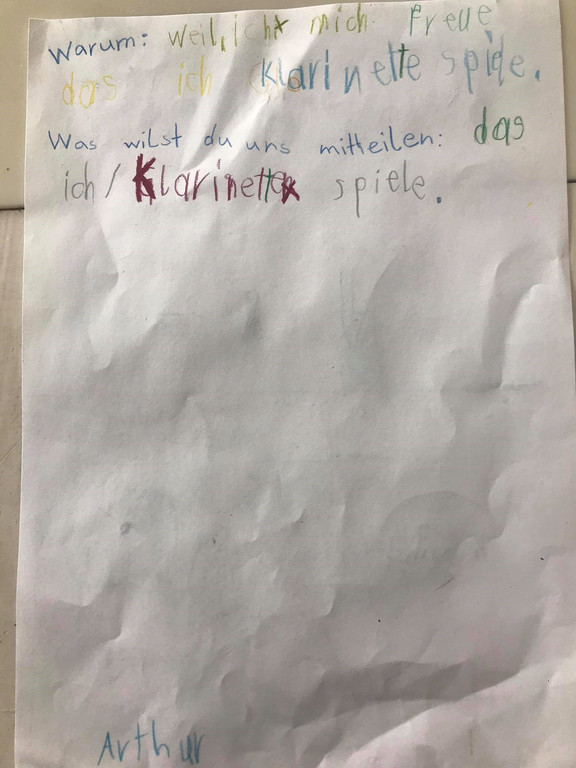 Warum: weil, ich mich freue
das ich Klarinette spiele.
Was wilst du uns mitteilen: das
ich / Klarinette spiele.
Arthur